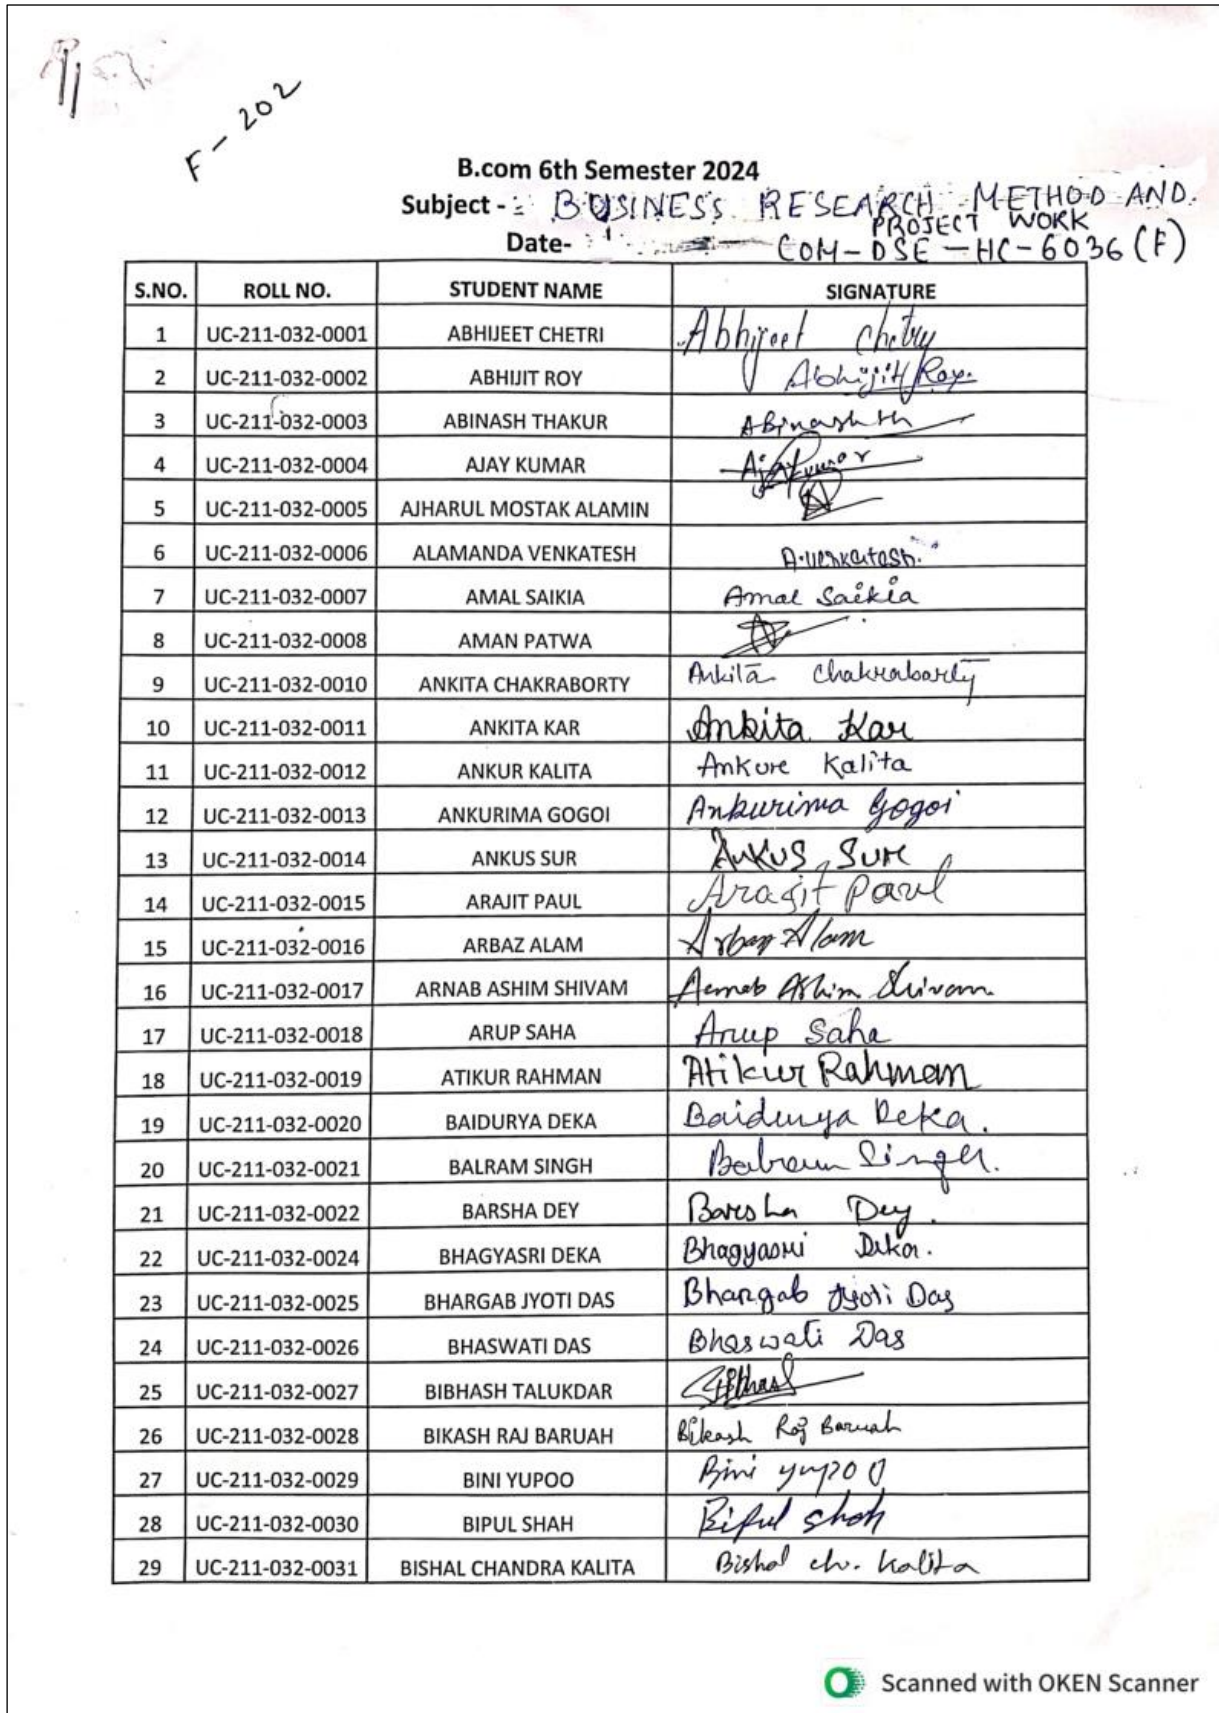 F - 202
B.com 6th Semester 2024
Subject - : BUSINESS RESEARCH METHOD AND
PROJECT WORK
Date- COM-DSE-HC-6036 (F)
S.NO. ROLL NO. STUDENT NAME SIGNATURE
1 UC-211-032-0001 ABHIJEET CHETRI Abhijeet Chetry
2 UC-211-032-0002 ABHIJIT ROY Abhijit Roy.
3 UC-211-032-0003 ABINASH THAKUR Abinash th
4 UC-211-032-0004 AJAY KUMAR Ajay Kumar
5 UC-211-032-0005 AJHARUL MOSTAK ALAMIN
6 UC-211-032-0006 ALAMANDA VENKATESH A.Venkatesh.
7 UC-211-032-0007 AMAL SAIKIA Amal Saikia
8 UC-211-032-0008 AMAN PATWA
9 UC-211-032-0010 ANKITA CHAKRABORTY Ankita Chakraborty
10 UC-211-032-0011 ANKITA KAR Ankita Kar
11 UC-211-032-0012 ANKUR KALITA Ankur Kalita
12 UC-211-032-0013 ANKURIMA GOGOI Ankurima Gogoi
13 UC-211-032-0014 ANKUS SUR Ankus Sur
14 UC-211-032-0015 ARAJIT PAUL Arajit Paul
15 UC-211-032-0016 ARBAZ ALAM Arbaz Alam
16 UC-211-032-0017 ARNAB ASHIM SHIVAM Arnab Ashim Shivam.
17 UC-211-032-0018 ARUP SAHA Arup Saha
18 UC-211-032-0019 ATIKUR RAHMAN Atikur Rahman
19 UC-211-032-0020 BAIDURYA DEKA Baidurya Deka.
20 UC-211-032-0021 BALRAM SINGH Balram Singh.
21 UC-211-032-0022 BARSHA DEY Barsha Dey.
22 UC-211-032-0024 BHAGYASRI DEKA Bhagyasri Deka.
23 UC-211-032-0025 BHARGAB JYOTI DAS Bhargab Jyoti Das
24 UC-211-032-0026 BHASWATI DAS Bhaswati Das
25 UC-211-032-0027 BIBHASH TALUKDAR
26 UC-211-032-0028 BIKASH RAJ BARUAH Bikash Raj Baruah
27 UC-211-032-0029 BINI YUPOO Bini yupoo
28 UC-211-032-0030 BIPUL SHAH Bipul Shah
29 UC-211-032-0031 BISHAL CHANDRA KALITA Bishal ch. Kalita
Scanned with OKEN Scanner